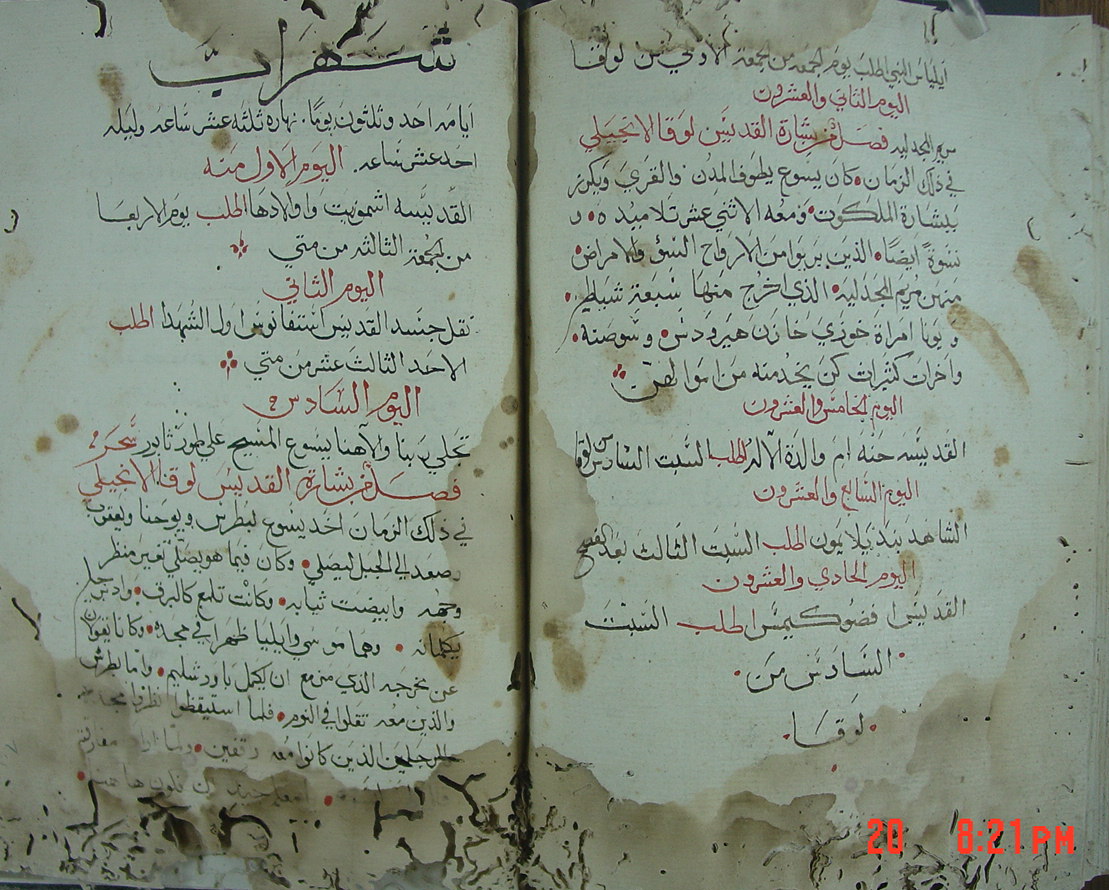 ايلياس النبي اطلب يوم الجمعه من الجمعة الاولي من لوقا
اليوم الثاني والعشرون
مريم المجدليه فصل من بشارة القديس لوقا الانجيلي
في ذلك الزمان كان يسوع يطوف المدن والقري ويكرز
يبشارة الملكوت ومعه الاثني عشر تلاميذه و
نسوة ايضًا الذين بريوا من الارواح السو والامراض
منهن مريم المجدليه الذي اخرج منها سبعة شياطين
ويونا امراة خوزي خازن هيرودس وسوصنه
واخرات كثيرات كن يخدمنه من اموالهن
اليوم الخامس والعشرون
القديسه حنه ام والدة الاله اطلب السبت السادس من لوقا
اليوم السابع والعشرون
الشاهد بنديلايمون اطلب السبت الثالث بعد الفصح
اليوم الحادي والعشرون
القديس افضوكيمس اطلب السبت
السادس من
لوقا
شهر اب
ايامه احد وثلثون يومًا نهاره ثلثه عشر ساعه وليله
احد عشر ساعه اليوم الاول منه
القديسه اشمونيت واولادها اطلب يوم الاربعا
من الجمعة الثالثه من متي
اليوم الثاني
نقل جسد القديس استفانوس اول الشهدا اطلب
الاحد الثالث عشر من متي
اليوم السادس
تجلي ربنا والاهنا يسوع المسيح علي طور ثابور سحر
فصل من بشارة القديس لوقا الانجيلي
في ذلك الزمان اخد يسوع لبطرس ويوحنا ويعقوب
وصعد الي الجبل ليصلي وكان فيما هو يصلي تغير منظر
وجهه وابيضت ثيابه وكانت تلمع كالبرق واذا رجلين
يكلمانه وهما موسي وايليا ظهرا في مجده وكانا يقولان
عن مخرجه الذي مزمع ان يكمل باورشليم واما بطرس
والذين معه ثقلوا في النوم فلما استيقظوا نظروا مجده
والرجلين الذين كانوا معه واقفين ولما ارادا مفارقته
20 8:21 PM